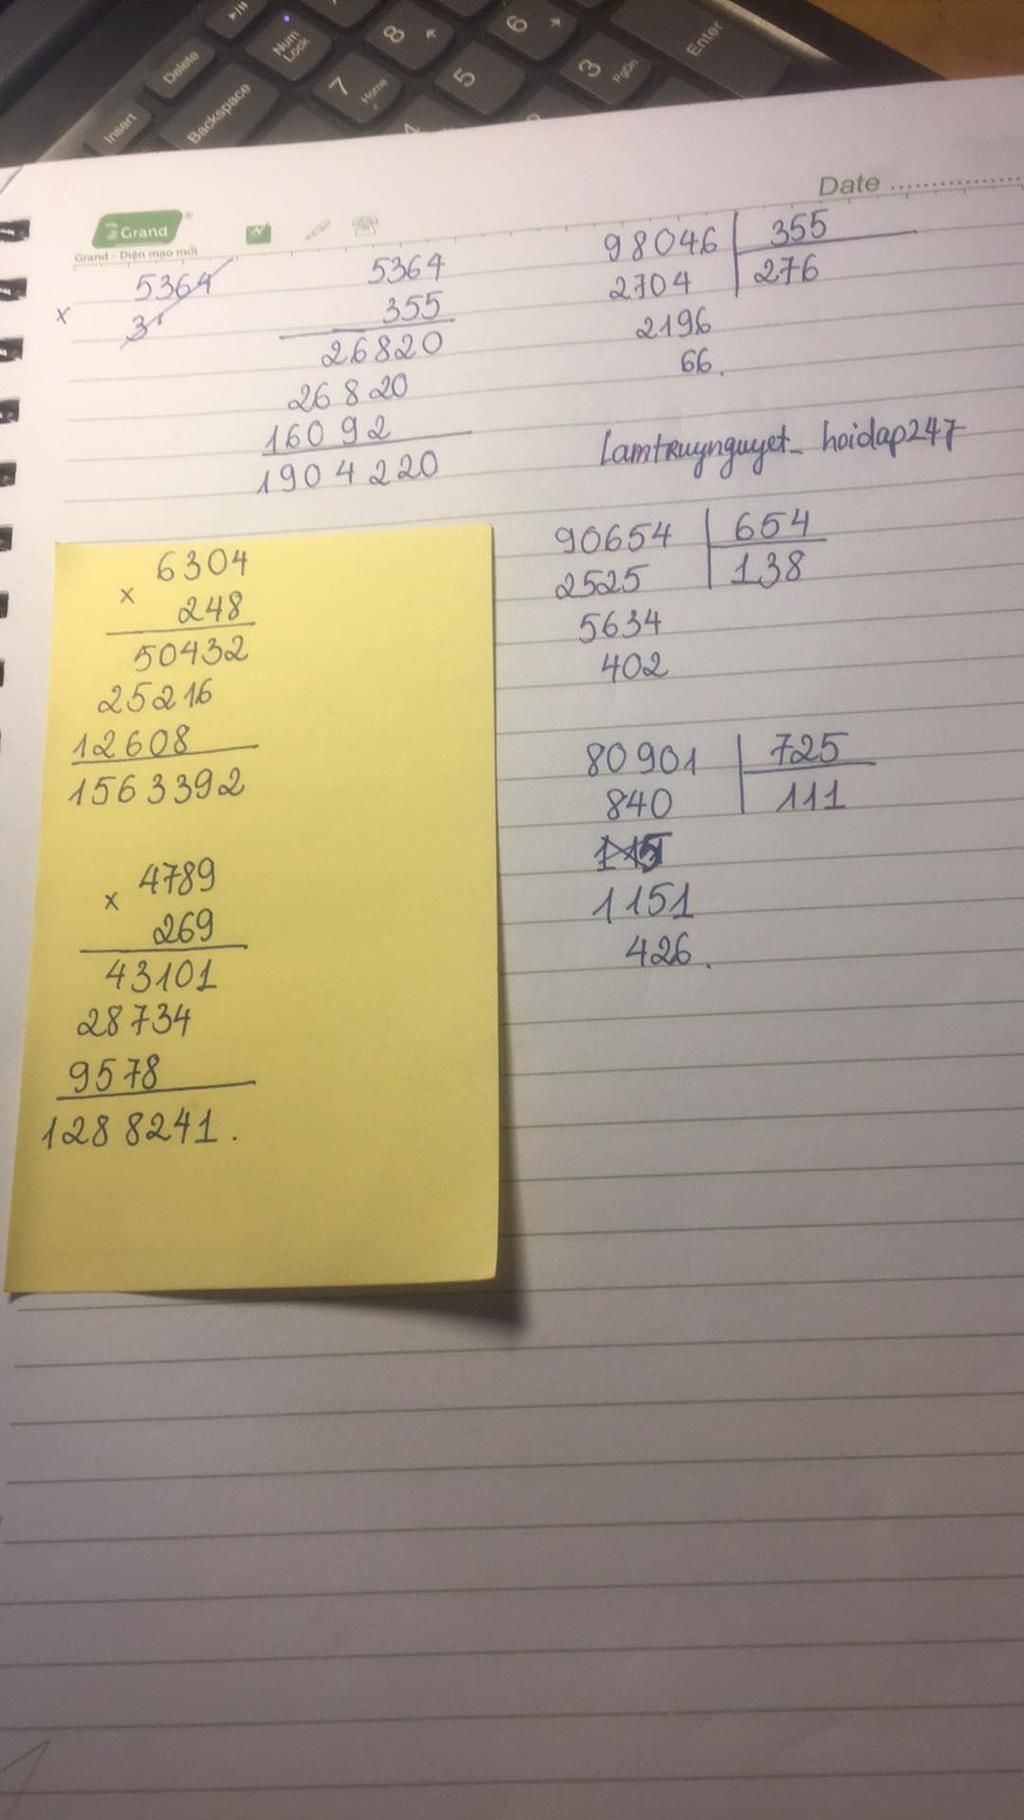 Insert
Delete
Backspace
Num
Lock
7
Home
8
5
6
3
PgDn
Enter
Date
Grand
Grand - Diện mạo mới
5364
x
3
5364
355
26820
26820
16092
1904220
98046 355
2704 276
2196
66.
lamtruynguyet_ hoidap247
6304
x
248
50432
25216
12608
1563392
4789
x
269
43101
28734
9578
1288241.
90654 654
2525 138
5634
402
80901 725
840 111
1151
426.